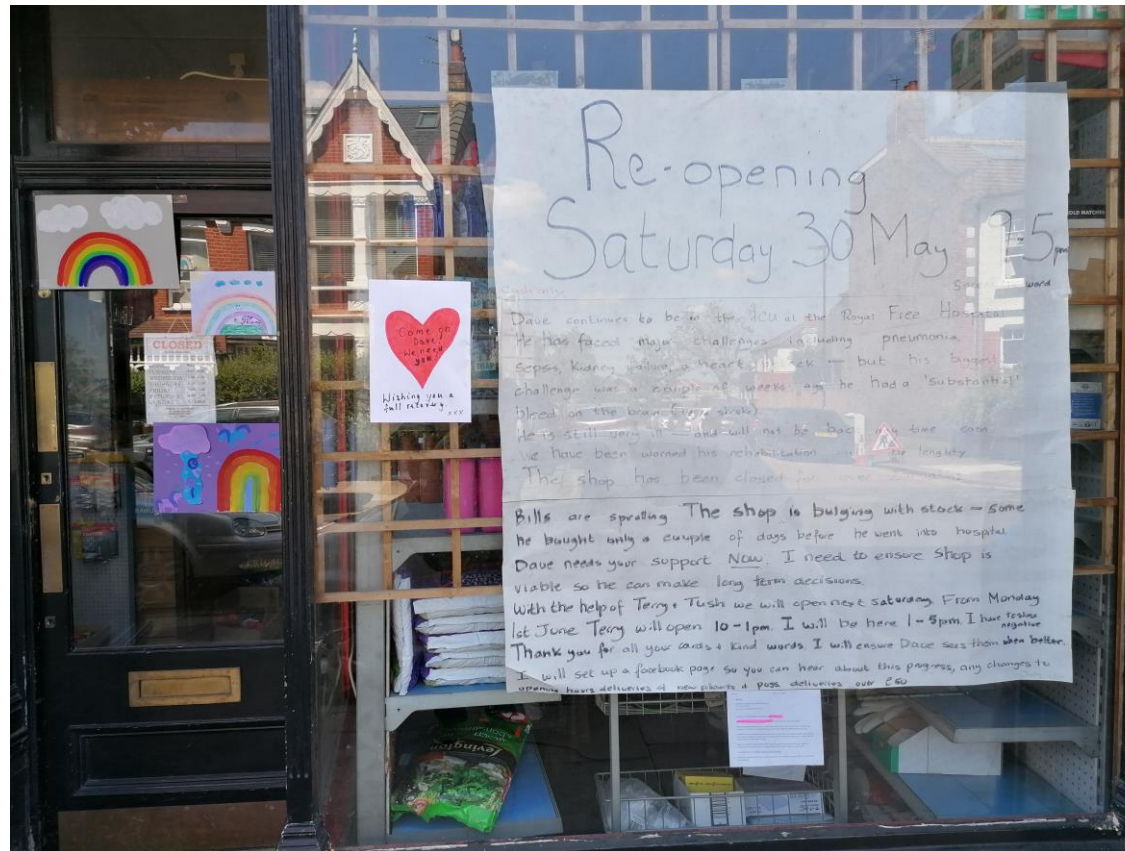 Re-opening
Saturday 30 May 9-5pm
Spread word
Cash only
Dave continues to be in the ICU at the Royal Free Hospital
He has faced major challenges including pneumonia,
sepsis, kidney failure, a heart - but his biggest
challenge was a couple of weeks ago he had a 'substantial'
bleed on the brain stroke)
He is still very ill - and will not be back any time soon
We have been warned his rehabilitation lengthy
The shop has been closed for over
Bills are The shop is bulging with stock - some
he bought only a couple of days before he went into hospital
Dave needs your support Now. I need to ensure shop is
viable so he can make long term decisions.
With the help of Terry + Tush we will open next saturday. From Monday
1st June Terry will open 10-1pm. I will be here 1-5pm. I have tested negative
Thank you for all your cards + kind words. I will ensure Dave sees them when better.
I will set up a facebook page so you can hear about this progress, any changes to
opening hours deliveries of new plants + deliveries over £50
Come on
Dave
We need
you!
Wishing you a
full recovery.
xxx
CLOSED
levington
OLD MATCHES